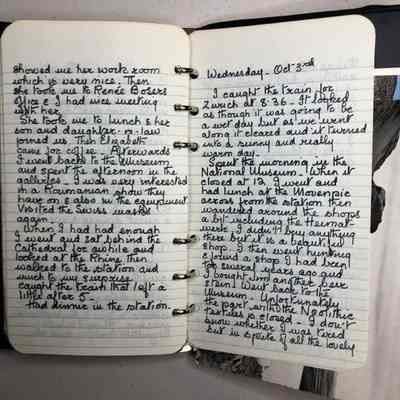 showed me her work room
which is very nice. Then
she took me to Renée Bosers
office & I had nice meeting
with her.
She took me to lunch & her
son and daughter-in-law
joined us. Then Elizabeth
came for coffee. Afterwards
I went back to the Museum
and spent the afternoon in the
galleries. I was very interested
in a Roumanian show they
have on & also in the equipment
Visited the Swiss masks
again.
When I had had enough
I went and sat behind the
Cathedral for awhile and
looked at the Rhine then
walked to the station and
much to my surprise
caught the train that left a
little after 5.
Had dinner in the station.
Wednesday - Oct 3rd
I caught the train for
Zurich at 8:36. It looked
as though it was going to be
a wet day but as we went
along it cleared and it turned
into a sunny and really
warm day.
Spent the morning in the
National Museum. When it
closed at 12 I went and
had lunch at the Movenpic
across from the station then
wandered around the shops
a bit including the Heimat-
werk. I didn't buy anything
there but it is a beautiful
shop. I then went hunting
& found a shop I had been
for several years ago and
I bought Jim another beer
stein. Went back to the
Museum. Unfortunately
the part with the Neolithic
textiles is closed. I don't
know whether I was tired
but in spite of all the lovely